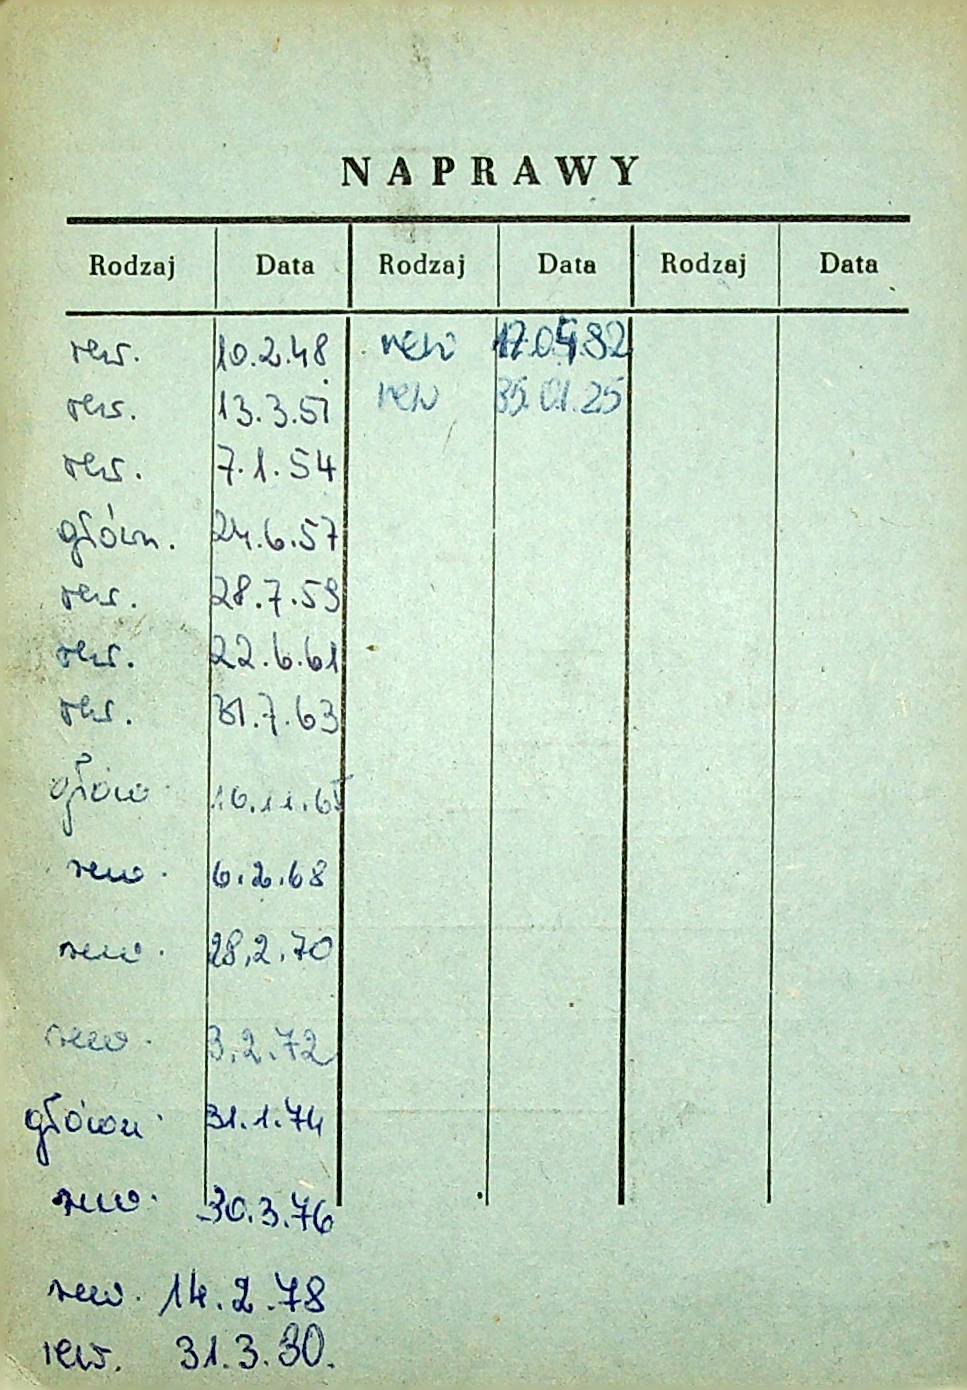 NAPRAWY
Rodzaj Data Rodzaj Data Rodzaj Data
rew. 10.2.48 rew
rew. 13.3.51 rew 35.01.25
rew. 7.1.54
główn. 24.6.57
rew. 28.7.59
rew. 22.6.61
rew. 31.7.63
główn. 16.11.65
rew. 6.2.68
rew. 28.2.70
rew. 3.2.72
główn. 31.1.74
rew. 30.3.76
rew. 14.2.78
rew. 31.3.80.